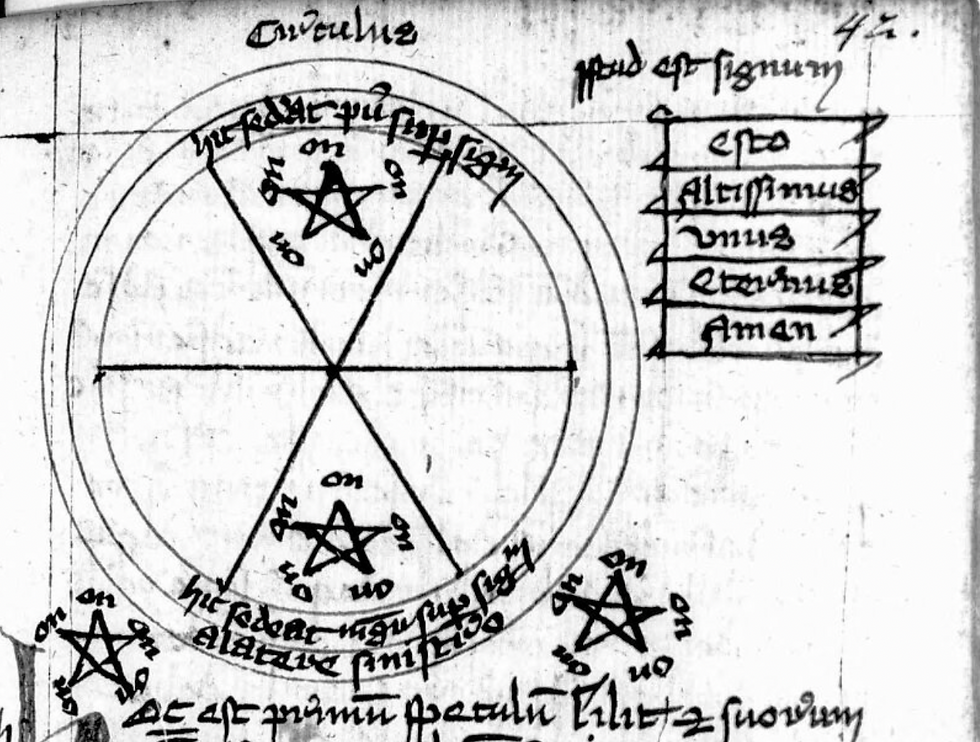 Circulus
42.
Istud est signum
esto
Altissimus
vnus
Eternus
Amen
hic sedeat pu sup sigm
on
on
on
on
on
on
on
on
on
on
hic sedeat mgr sup sigm
A latere sinistro
on
on
on
on
on
on
on
on
on
on
Et est primu speculu lilit et suorum